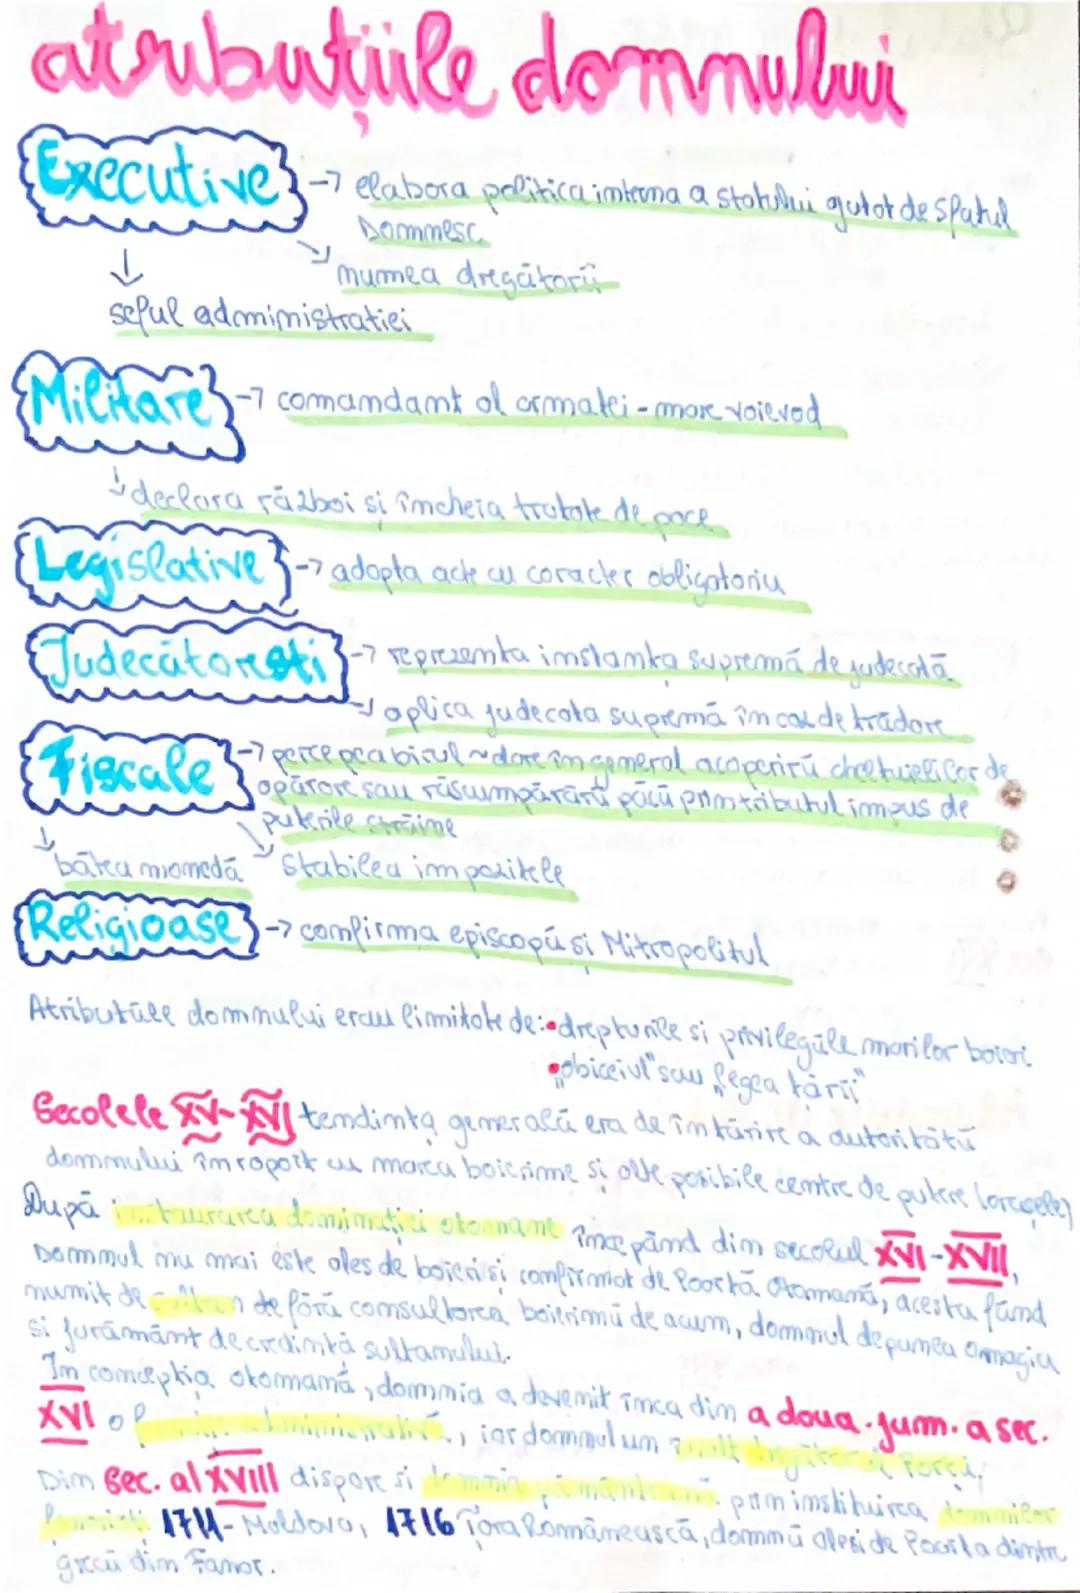 atribuțiile domnului
Executive → elabora politica interna a statului ajutat de Sfatul
Domnesc
numea dregătorii
seful administratiei
Militare → comandant al armatei - mare voievod
declara război si încheia tratate de pace
Legislative → adopta acte cu caracter obligatoriu
Judecătoresti → reprezenta instanta supremă de judecată
aplica judecata supremă în caz de trădare
Fiscale → percepea birul ~ dare în general acoperirii cheltuielilor de
apărare sau răscumpărării păcii prin tributul impus de
puterile străine
bătea monedă stabilea impozitele
Religioase → confirma episcopii si Mitropolitul
Atributiile domnului erau limitate de: • drepturile si privilegiile marilor boieri
• "obiceiul" sau "legea tării"
Secolele XV-XVI tendinta generală era de întărire a autoritătii
domnului în raport cu marea boierime si alte posibile centre de putere (orasele)
După instaurarea dominatiei otomane începând din secolul XVI-XVII,
Domnul nu mai este ales de boieri si confirmat de Poartă Otomană, acesta fiind
numit de sultan de fără consultarea boierimii de acum, domnul depunea omagiu
si jurământ de credintă sultanului.
In conceptia otomană, domnia a devenit inca din a doua jum. a sec.
XVI o administrativă, iar domnul un înalt Portii,
Din sec. al XVIII dispare si domnia pământeană prin instituirea domniilor
1711 - Moldova, 1716 Tara Românească, domnii alesi de Poarta dintre
grecii din Fanar.